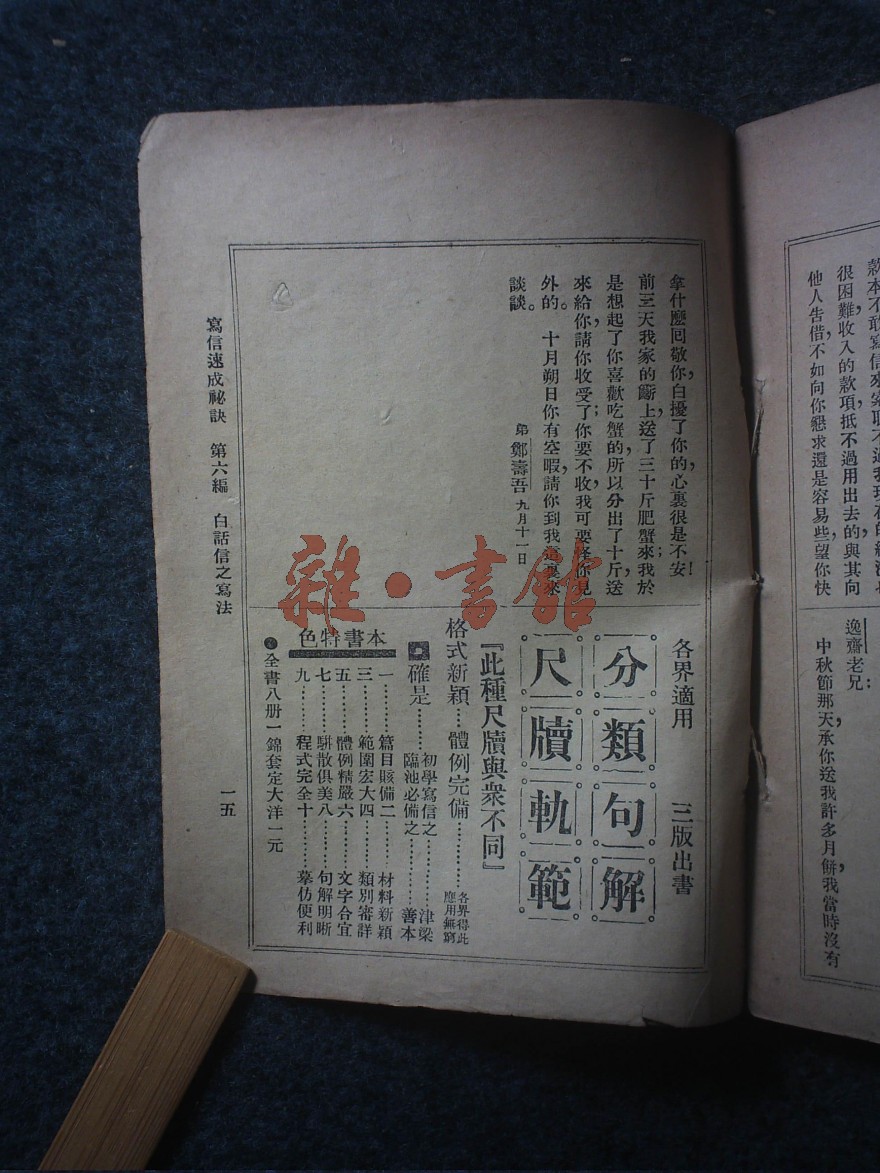 很困難收入的款項抵不過用出去的與其向
他人告借,不如向你懇求還是容易些,望你快
逸齋老兄:
中秋節那天,承你送我許多月餅,我當時沒有
拿什麼回敬你,白擾了你的,心裏很是不安!
前三天我家的斷上送了三十斤肥蟹來,我於
是想起了你喜歡吃蟹的,所以分出了十斤送
來給你,請你收受了;你要不收,我可要怪你見
外的。 十月朔日你有空暇,請你到我這裏來
談談。
弟鄭壽吾 九月十一日
各界適用 三版出書
分類句解
尺牘軌範
『此種尺牘與衆不同』
格式新穎…體例完備………各界得此應用無窮
確是……初學寫信之……津梁
臨池必備之……善本
本書特色
一………篇目賅備二………材料新穎
三………範圍宏大四………類別審詳
五………體例精嚴六………文字合宜
七………駢散俱美八………句解明晰
九………程式完全十………摹仿便利
全書八册一錦套定大洋一元
寫信速成祕訣 第六編 白話信之寫法 一五
雜·書館